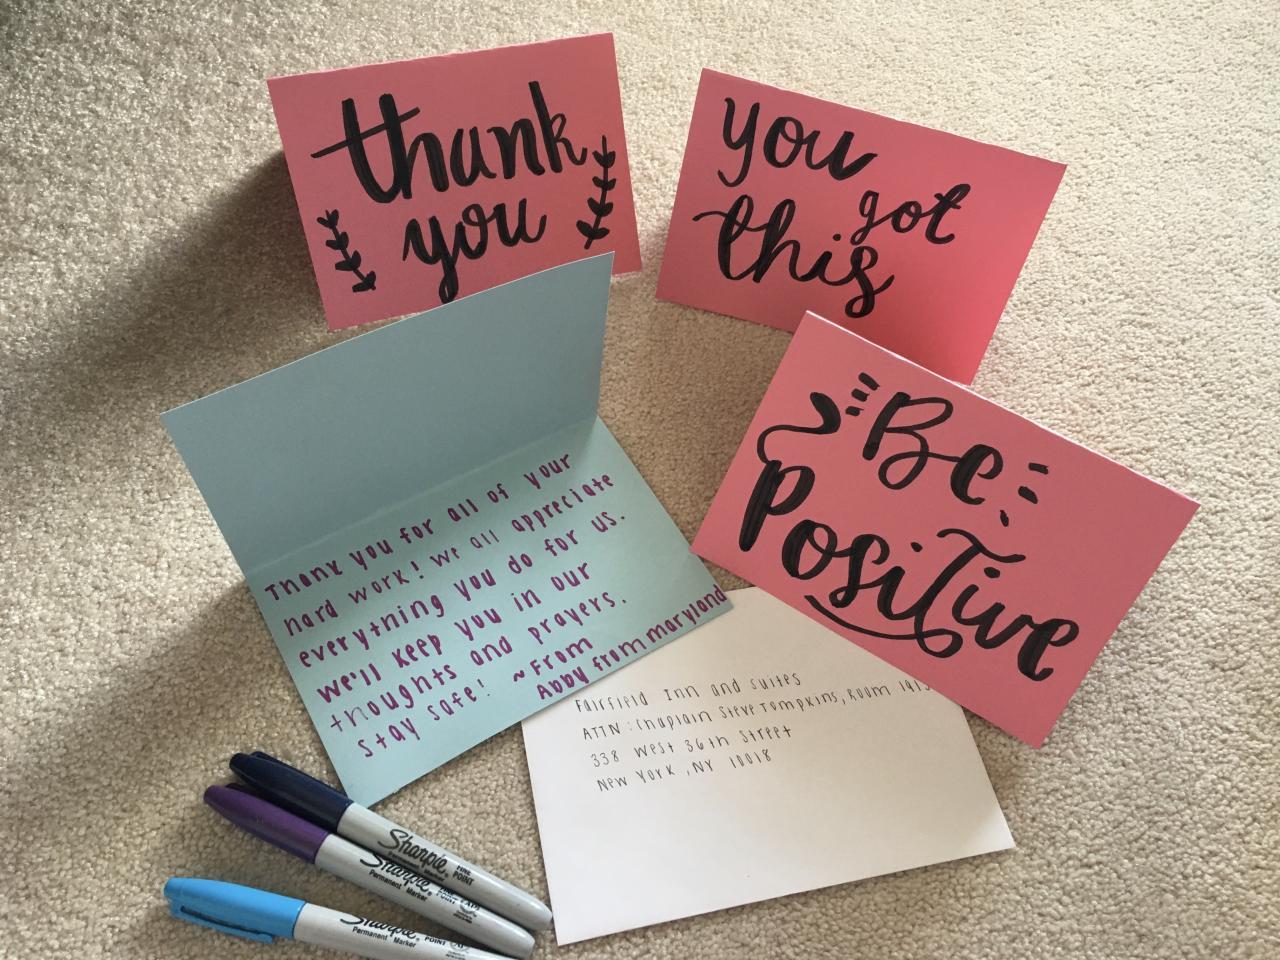 thank
you
you
got
this
Be
Positive
Thank you for all of your
hard work! We all appreciate
everything you do for us.
We'll keep you in our
thoughts and prayers.
Stay safe! ~From
Abby from maryland
Fairfield Inn and Suites
ATTN: Chaplain Steve Tompkins, Room
338 West 36th Street
New York, NY 10018
Sharpie
Permanent Marker
FINE
POINT
Sharpie
Permanent Marker
Sharpie
Permanent Marker
POINT